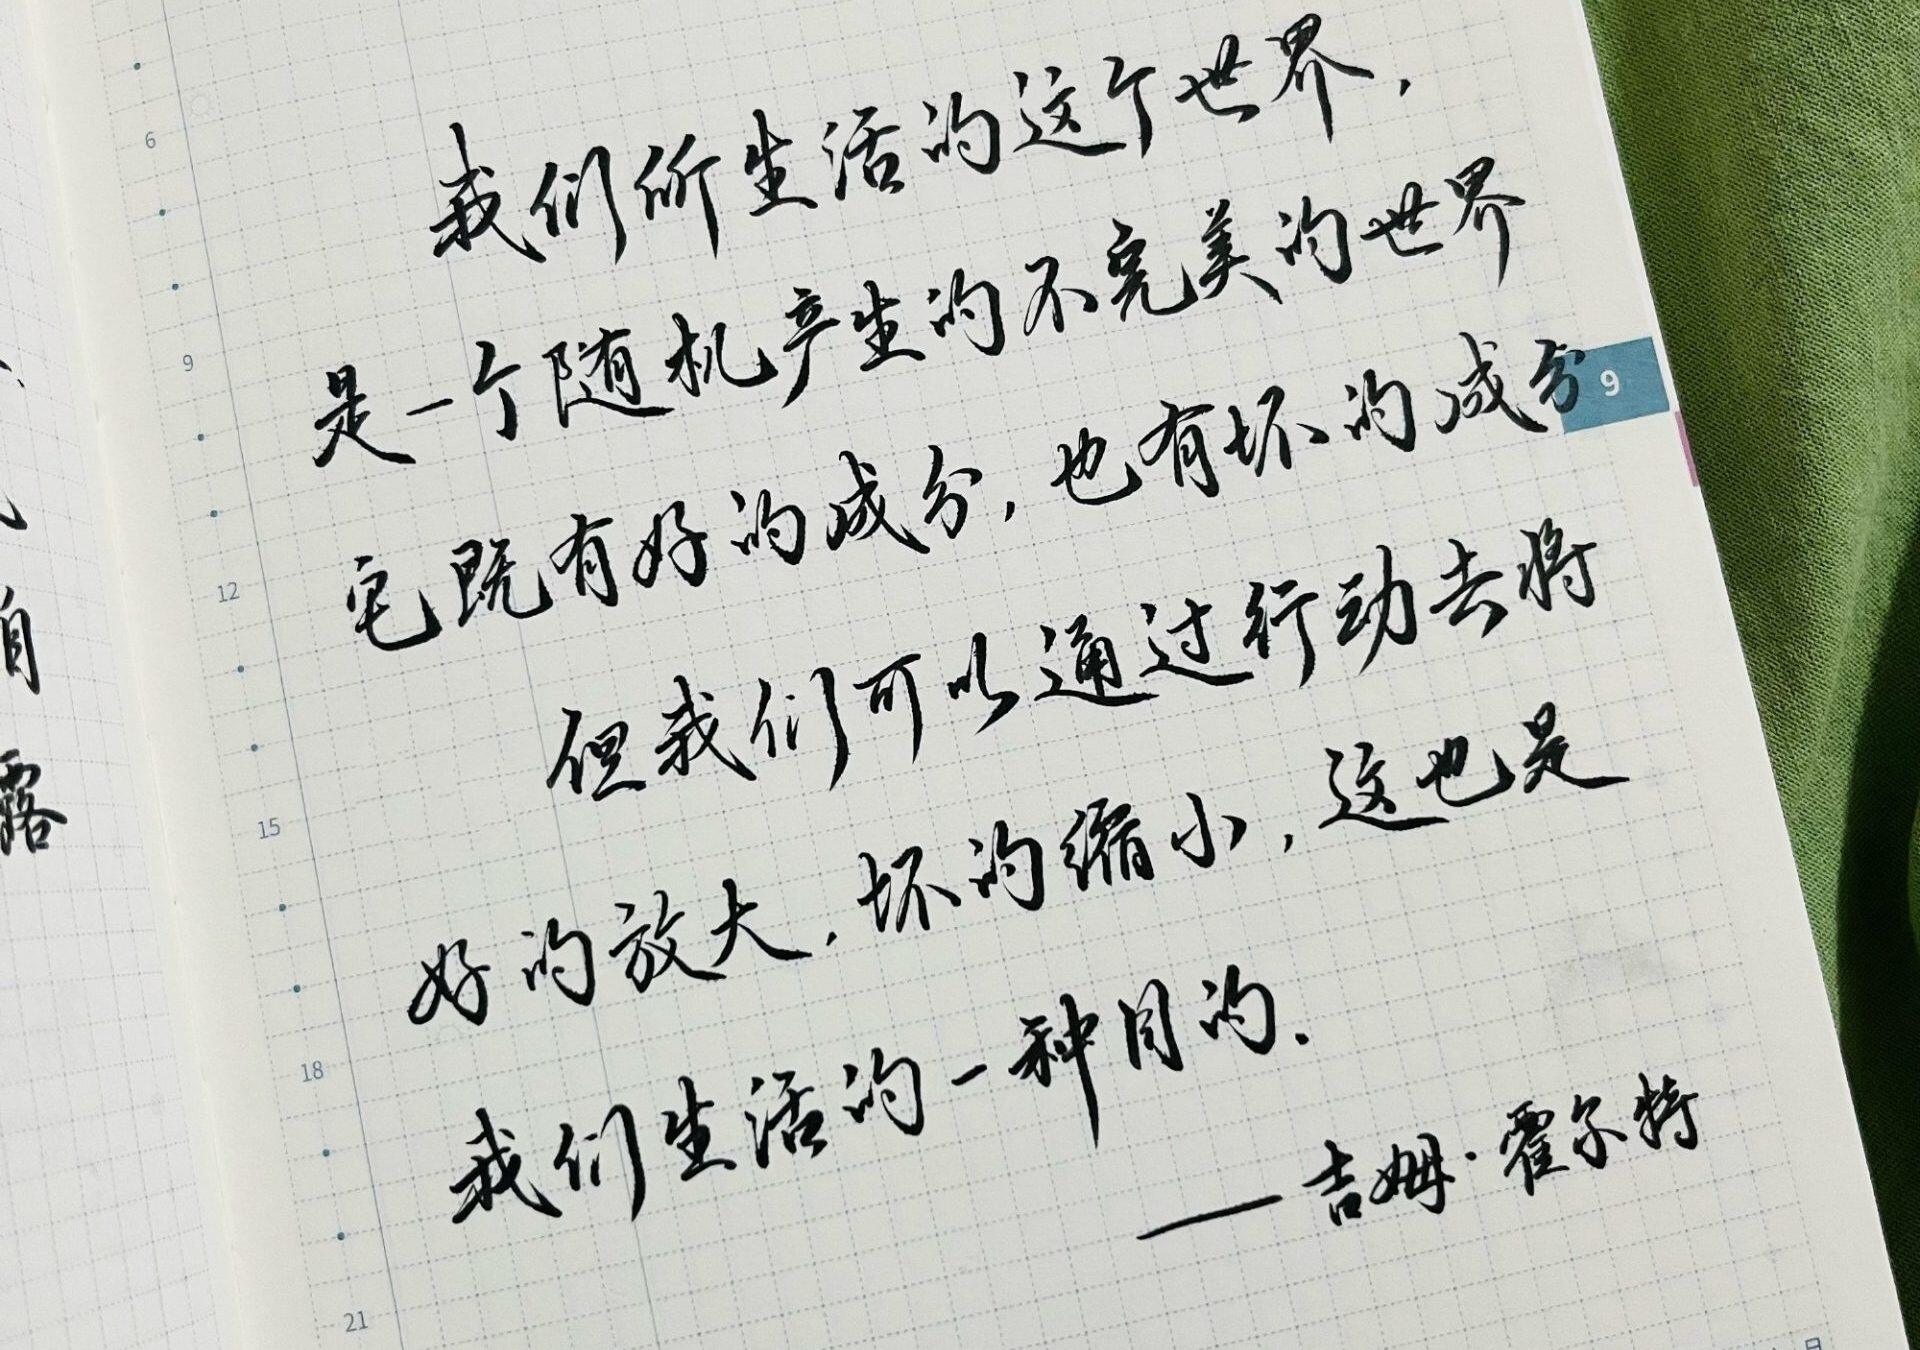 我们所生活的这个世界，
是一个随机产生的不完美的世界
它既有好的成分，也有坏的成分
但我们可以通过行动去将
好的放大，坏的缩小，这也是
我们生活的一种目的.
——吉姆·霍尔特
6
9
12
15
18
21
9
露
日